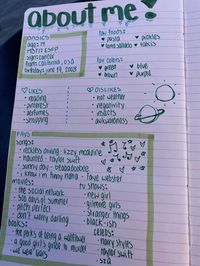 about me!
BASICS
ages 14
mbti: ESFP
sign: cancer
from: california, USA
birthday: june 29, 2008
fav foods:
pasta
pickles
long salads
takis
fav colors:
green
blue
brown
purple
LIKES
- reading
- pinterest
- perfumes
- shopping
DISLIKES
- hot weather
- negativity
- insects
- awkwardness
FAVS
songs:
- reckless driving - lizzy mcalpine
- haunted - taylor swift
- sunny day - beabadoobee
- i know i'm funny haha - faye webster
movies:
- the social network
- 500 days of summer
- pitch perfect
- don't worry darling
books:
- the perks of being a wallflower
- a good girl's guide to murder
- we were liars
tv shows:
- new girl
- gilmore girls
- stranger things
- black-ish
celebs:
- harry styles
- taylor swift
- sza